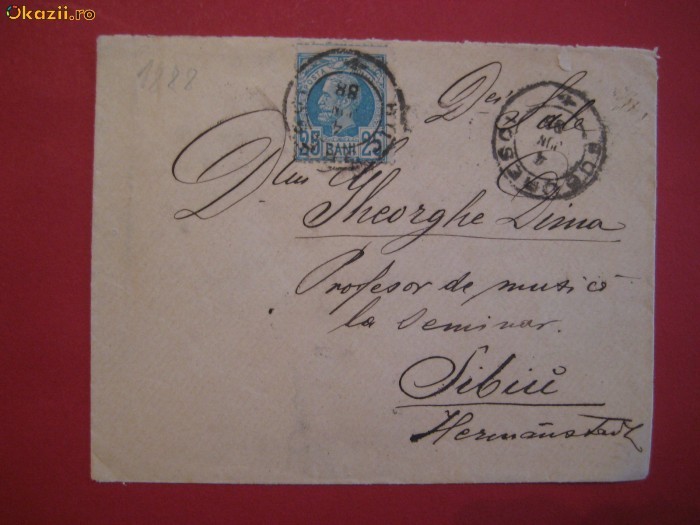 Okazii.ro
1888
25 BANI 25
88
BUCURESCI
JUN
Dlui
Gheorghe Dima
Profesor de muzică
la Seminar.
Sibiiŭ
Hermanstadt